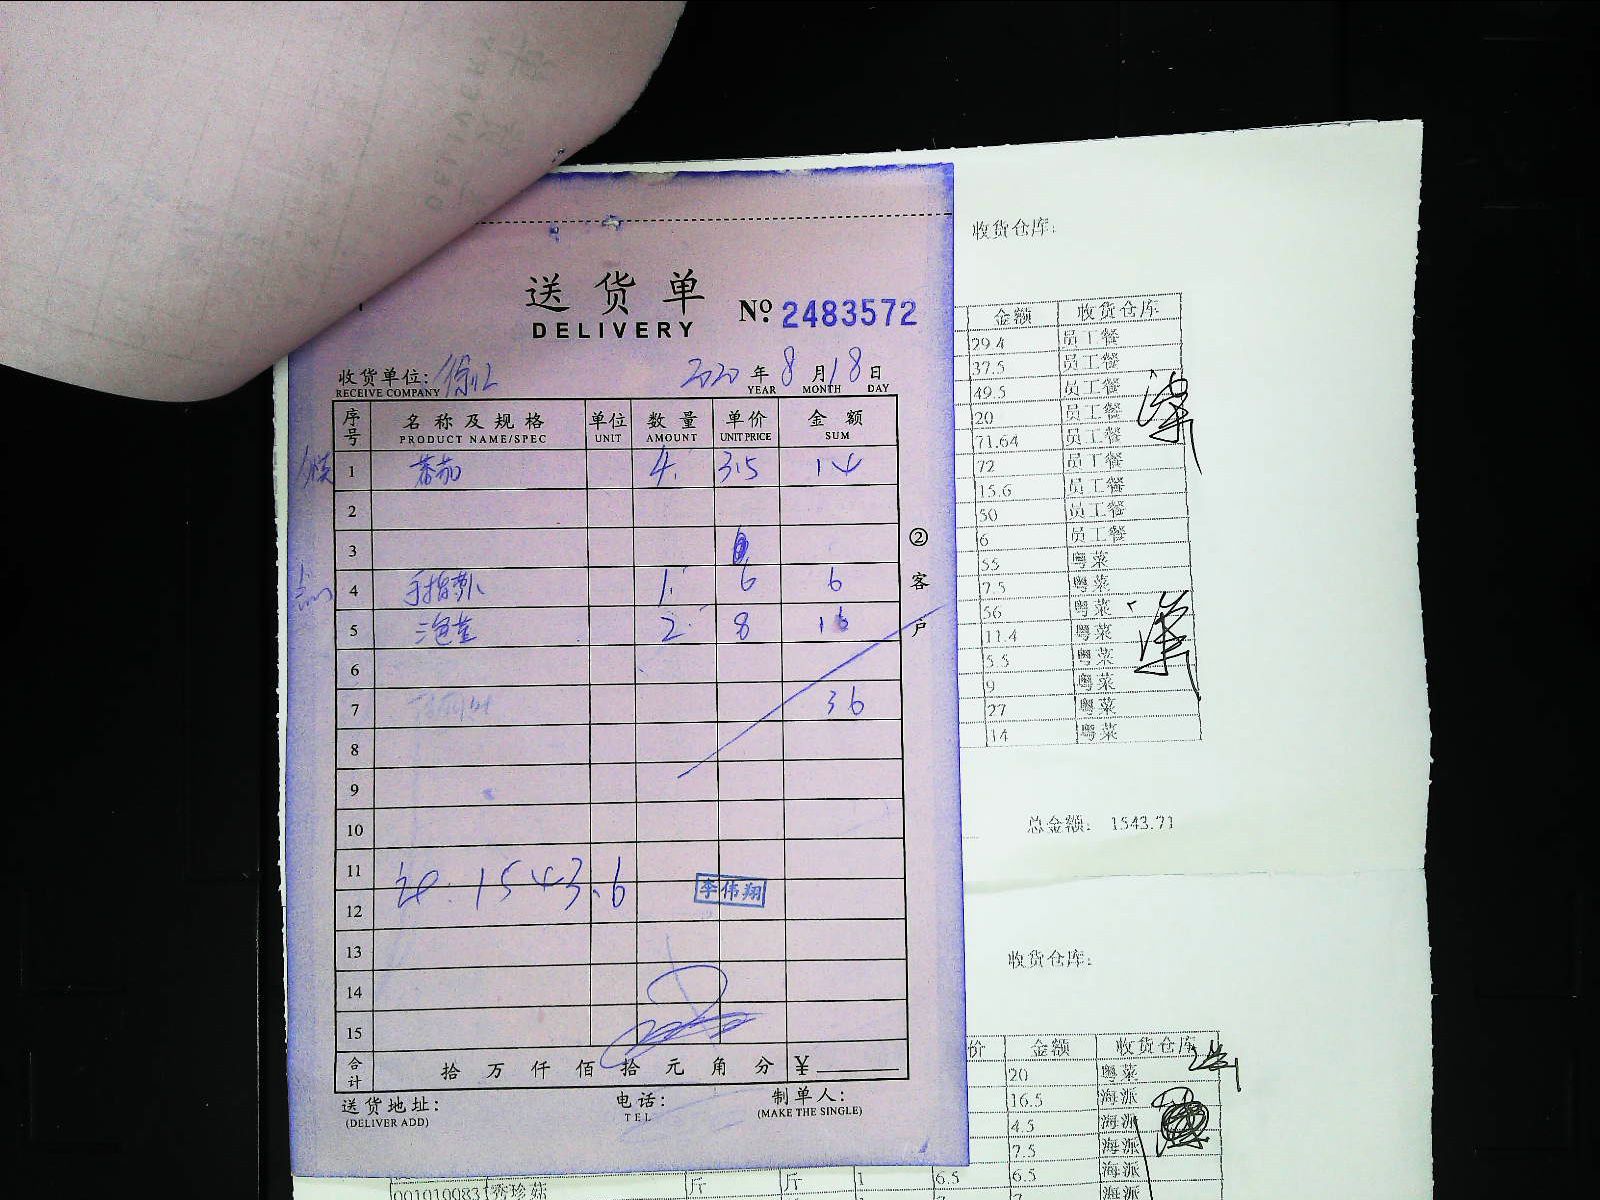 送货单
DELIVERY
No. 2483572
收货单位:
RECEIVE COMPANY
2020 年 8 月 18 日
YEAR MONTH DAY
序号 名称及规格 单位 数量 单价 金额
PRODUCT NAME/SPEC UNIT AMOUNT UNIT PRICE SUM
1 蕃茄 4. 3.5 14
2
3
4 手指萝卜 1. 6 6
5 2. 8 16
6
7 36
8
9
10
11
1543.6 李伟翔
12
13
14
15
合计 拾 万 仟 佰 拾 元 角 分 ¥
送货地址: 电话: 制单人:
(DELIVER ADD) TEL (MAKE THE SINGLE)
②客户
收货仓库:
金额 收货仓库
29.4 员工餐
37.5 员工餐
49.5 员工餐
20 员工餐
71.64 员工餐
72 员工餐
15.6 员工餐
50 员工餐
6 员工餐
55 粤菜
7.5 粤菜
56 粤菜
11.4 粤菜
5.5 粤菜
9 粤菜
27 粤菜
14 粤菜
总金额: 1543.71
收货仓库:
价 金额 收货仓库
20 粤菜
16.5 海派
4.5 海派
7.5 海派
001010083 秀珍菇 斤 斤 1 6.5 6.5 海派
海派